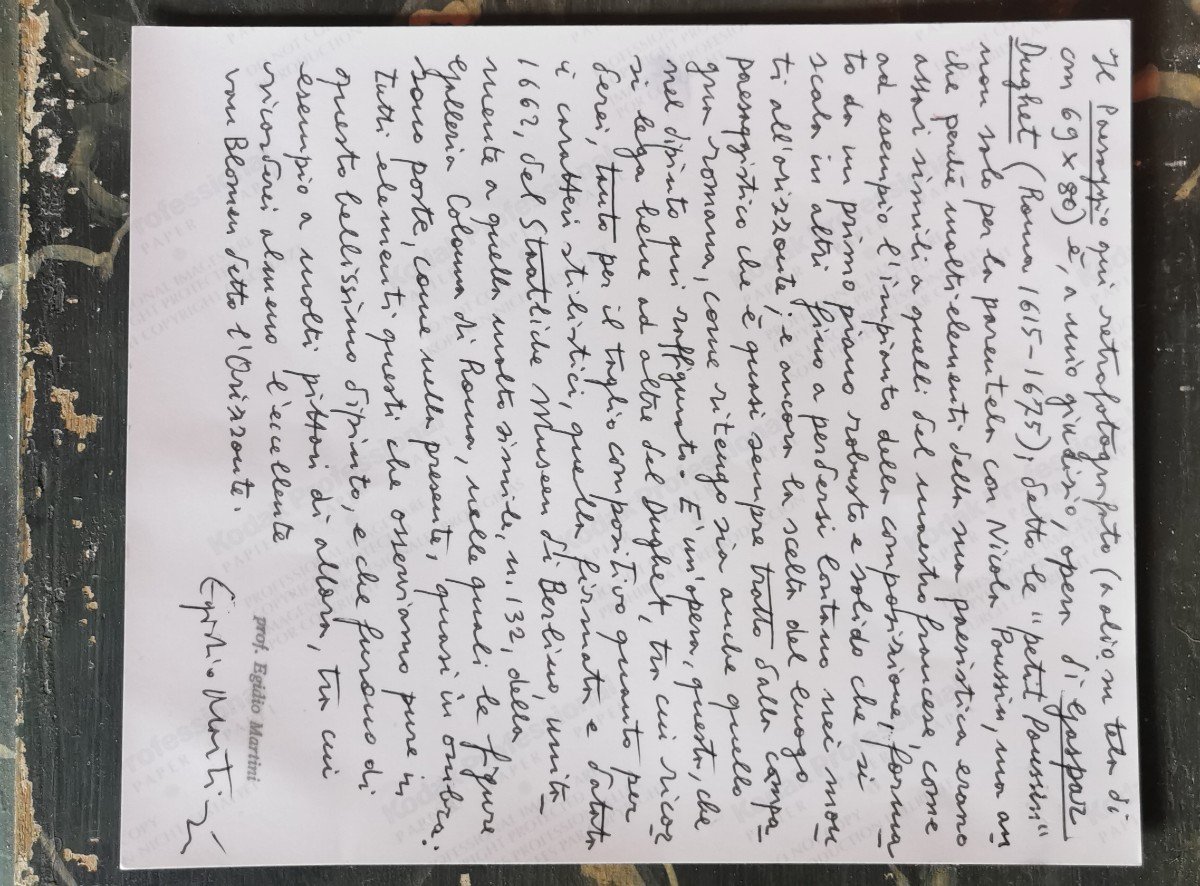 Il Paesaggio qui retrofotografato (a olio su tela di
cm 69 x 88) è, a mio giudizio, opera di Gaspar
Dughet (Roma 1615-1675), detto le "petit Poussin"
non solo per la parentela con Nicola Poussin, ma an
che perché molti elementi della sua paesistica erano
assai simili a quelli del maestro francese, come
ad esempio l'impianto della composizione, forma
to da un primo piano robusto e solido che si
scala in altri fino a perdersi lontano nei mon
ti all'orizzonte; e ancora la scelta del luogo
paesaggistico che è quasi sempre tratto dalla campa
gna romana, come ritengo sia anche quello
nel dipinto qui raffigurato. E' un'opera, questa, che
si lega bene ad altre del Dughet, tra cui ricor
derei, tanto per il taglio compositivo quanto per
i caratteri stilistici, quella firmata e datata
1662, del Staatliche Museen di Berlino, unita
mente a quella molto simile, n. 132, della
Galleria Colonna di Roma, nelle quali le figure
sono poste, come nella presente, quasi in ombra:
tutti elementi questi che osserviamo pure in
questo bellissimo dipinto, e che furono di
esempio a molti pittori di allora, tra cui
ricorderei almeno l'eccellente
van Blomen detto l'Orizzonte.
Egidio Martini
prof. Egidio Martini
Kodak Professional
PAPER